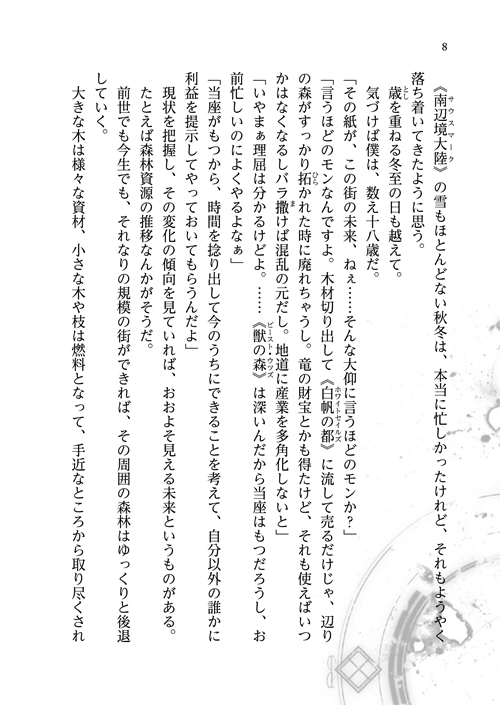 8
《南辺境大陸》の雪もほとんどない秋冬は、本当に忙しかったけれど、それもようやく
サウスマーク
落ち着いてきたように思う。
歳を重ねる冬至の日も越えて。
とし
気づけば僕は、数え十八歳だ。
「その紙が、この街の未来、ねぇ……そんな大仰に言うほどのモンか？」
「言うほどのモンなんですよ。木材切り出して《白帆の都》に流して売るだけじゃ、辺り
ホワイトセイルズ
の森がすっかり拓かれた時に廃れちゃうし。竜の財宝とかも得たけど、それも使えばいつ
ひら
かはなくなるしバラ撒けば混乱の元だし。地道に産業を多角化しないと」
ま
「いやまぁ理屈は分かるけどよ。……《獣の森》は深いんだから当座はもつだろうし、お
ビースト・ウッズ
前忙しいのによくやるよなぁ」
「当座がもつから、時間を捻り出して今のうちにできることを考えて、自分以外の誰かに
利益を提示してやっておいてもらうんだよ」
現状を把握し、その変化の傾向を見ていれば、おおよそ見える未来というものがある。
たとえば森林資源の推移なんかがそうだ。
前世でも今生でも、それなりの規模の街ができれば、その周囲の森林はゆっくりと後退
していく。
大きな木は様々な資材、小さな木や枝は燃料となって、手近なところから取り尽くされ